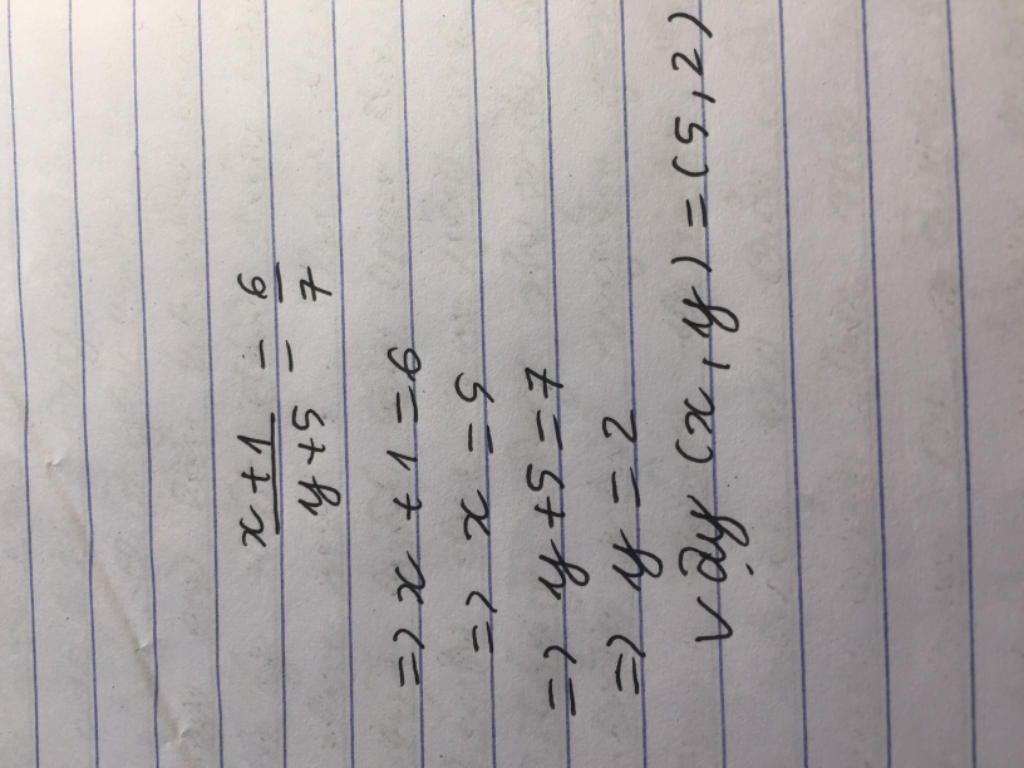 x+1/y+5 = 6/7
=> x+1=6
=> x=5
=> y+5=7
=> y=2
vậy (x,y)=(5,2)